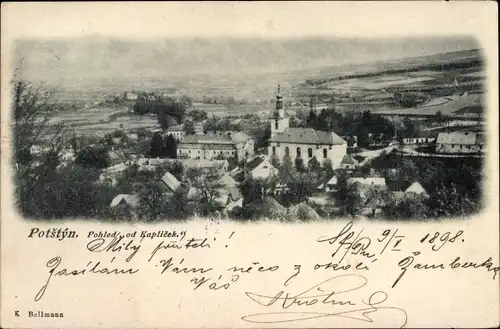 Potštýn. Pohled „od Kapliček."
Milý příteli!
9/I 1898.
Zasílám Vám něco z okolí Žamberka,
Váš
K. Bellmann